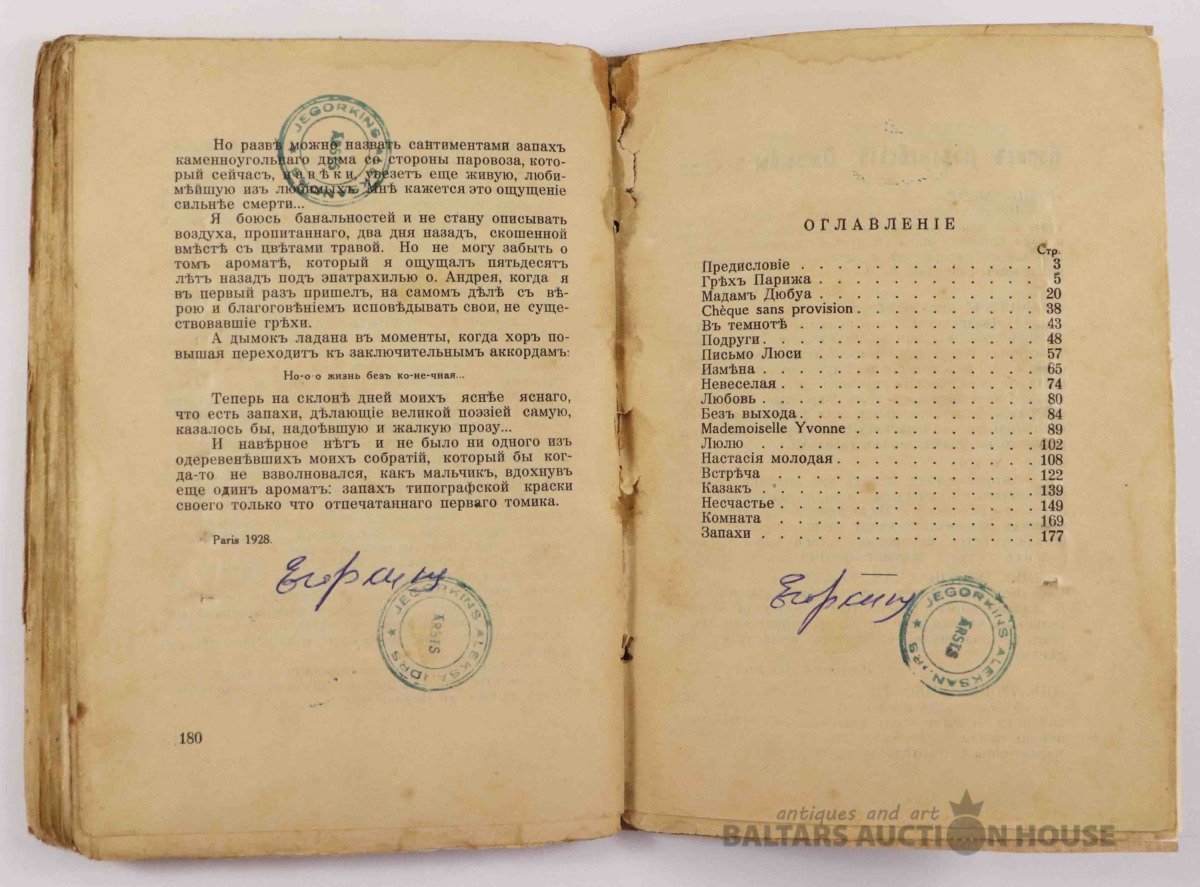 Но развѣ можно назвать сантиментами запахъ
каменноугольнаго дыма со стороны паровоза, кото-
рый сейчасъ, навѣки, увезетъ еще живую, люби-
мѣйшую изъ любимыхъ. Мнѣ кажется это ощущеніе
сильнѣе смерти...
Я боюсь банальностей и не стану описывать
воздуха, пропитаннаго, два дня назадъ, скошенной
вмѣстѣ съ цвѣтами травой. Но не могу забыть о
томъ ароматѣ, который я ощущалъ пятьдесятъ
лѣтъ назадъ подъ эпатрахилью о. Андрея, когда я
въ первый разъ пришелъ, на самомъ дѣлѣ съ вѣ-
рою и благоговѣніемъ исповѣдывать свои, не суще-
ствовавшіе грѣхи.
А дымокъ ладана въ моменты, когда хоръ по-
вышая переходитъ къ заключительнымъ аккордамъ:
Но-о-о жизнь безъ ко-не-чная...
Теперь на склонѣ дней моихъ яснѣе яснаго,
что есть запахи, дѣлающіе великой поэзіей самую,
казалось бы, надоѣвшую и жалкую прозу...
И навѣрное нѣтъ и не было ни одного изъ
одеревенѣвшихъ моихъ собратій, который бы ког-
да-то не взволновался, какъ мальчикъ, вдохнувъ
еще одинъ ароматъ: запахъ типографской краски
своего только что отпечатаннаго перваго томика.
Paris 1928.
Егоркинъ
180
JEGORKINS ALEKSANDRS
ĀRSTS
JEGORKINS ALEKSANDRS
ĀRSTS
ОГЛАВЛЕНІЕ
Стр.
Предисловіе . . . . . . . . . . . . . 3
Грѣхъ Парижа . . . . . . . . . . . . 5
Мадамъ Дюбуа . . . . . . . . . . . . 20
Chèque sans provision . . . . . . . . . . 38
Въ темнотѣ . . . . . . . . . . . . . 43
Подруги . . . . . . . . . . . . . . 48
Письмо Люси . . . . . . . . . . . . 57
Измѣна . . . . . . . . . . . . . . 65
Невеселая . . . . . . . . . . . . . 74
Любовь . . . . . . . . . . . . . . 80
Безъ выхода . . . . . . . . . . . . . 84
Mademoiselle Yvonne . . . . . . . . . . 89
Люлю . . . . . . . . . . . . . . 102
Настасія молодая . . . . . . . . . . . 108
Встрѣча . . . . . . . . . . . . . 122
Казакъ . . . . . . . . . . . . . . 139
Несчастье . . . . . . . . . . . . . 149
Комната . . . . . . . . . . . . . 169
Запахи . . . . . . . . . . . . . . 177
Егоркинъ
JEGORKINS ALEKSANDRS
ĀRSTS
antiques and art
BALTARS AUCTION HOUSE